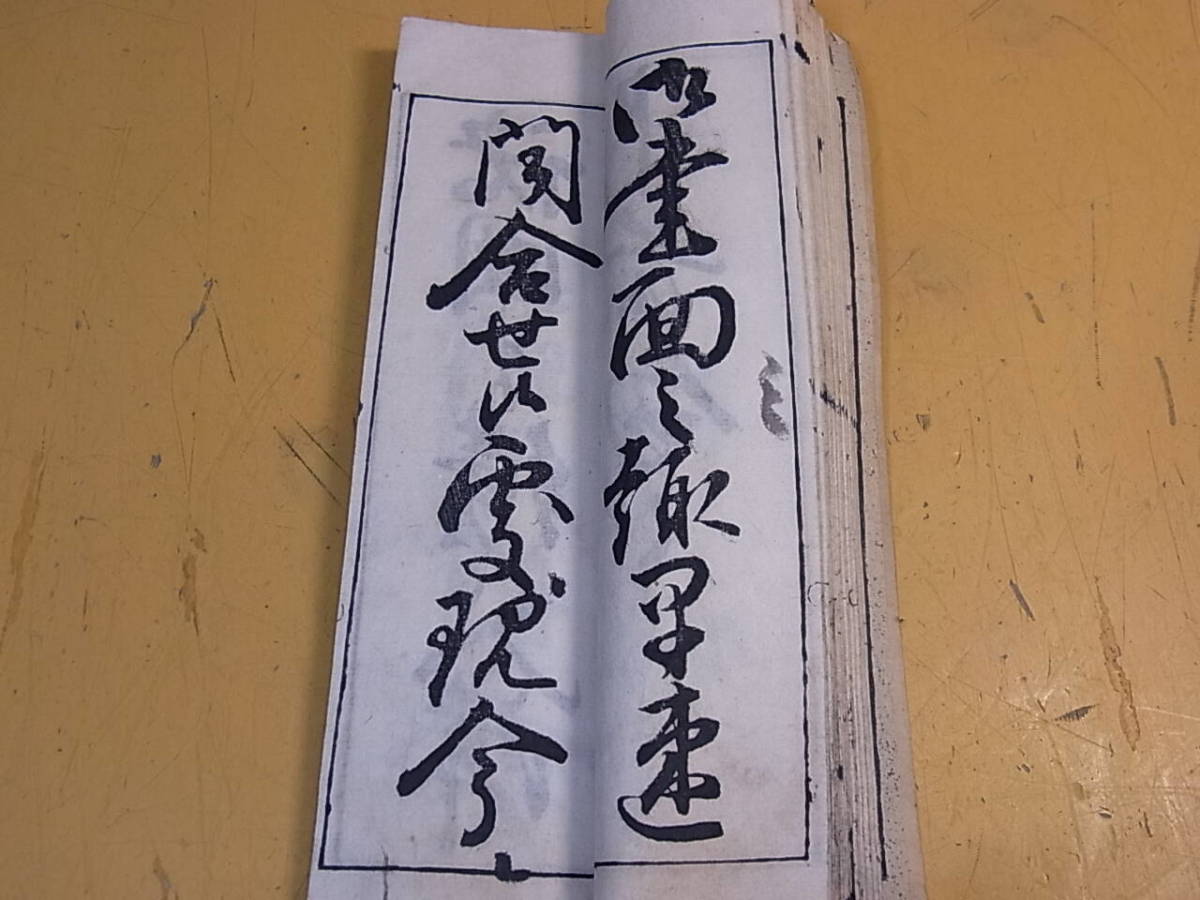 御書面之趣早速
聞合せ候處現今